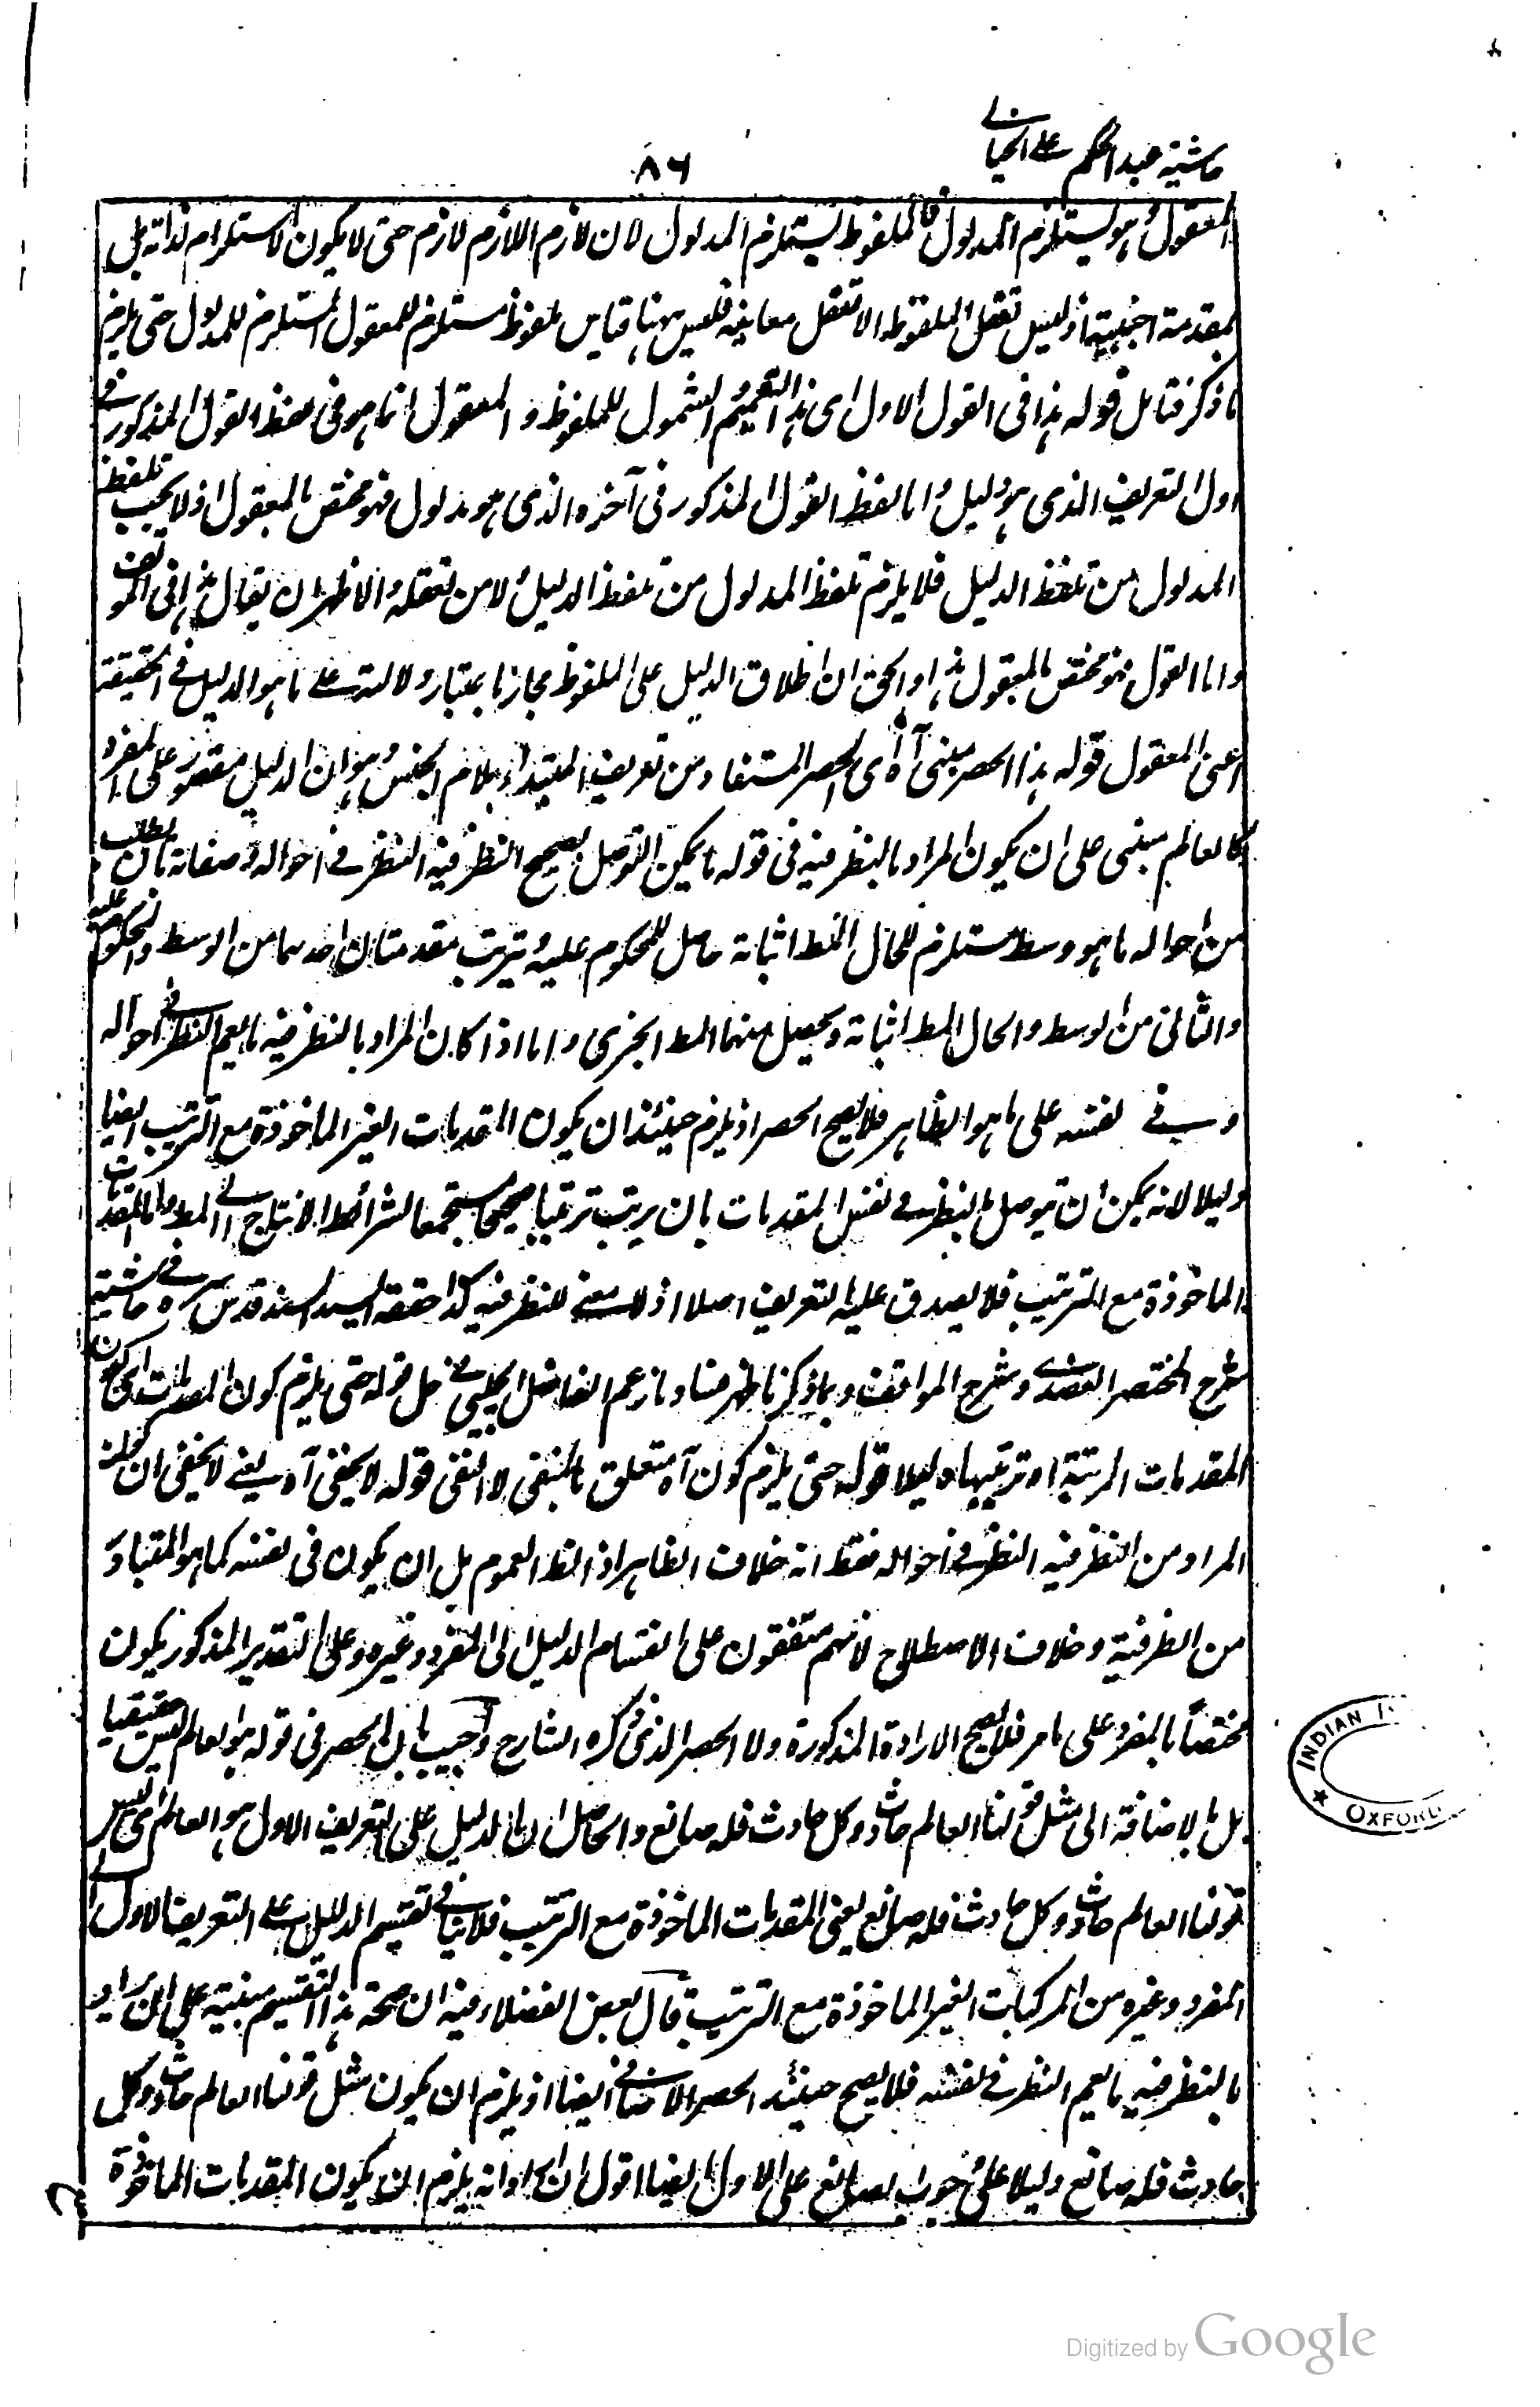 حاشية عبد الحكيم على الخيالي
٨٦
المعقول وهو يستلزم المدلول فالملفوظ يستلزم المدلول لان لازم اللازم لازم حتى لا يكون الاستلزام لذاته بل
بمقدمة اجنبية اذ ليس تعقل الملفوظ الا تعقل معانيه فليس ههنا قياس ملفوظ مستلزم للمعقول المستلزم للمدلول حتى يلزم
ما ذكر فتامل قوله هذا في القول الاول اى هذا التعميم الشمول للملفوظ والمعقول انما هو في لفظ القول المذكور في
اول التعريف الذى هو دليل واما لفظ القول المذكور في آخره الذى هو مدلول فهو مختص بالمعقول اذ لا يجب تلفظ
المدلول من تلفظ الدليل فلا يلزم تلفظ المدلول من تلفظ الدليل ولا من تعقله والاظهر ان يقال هذا في المؤلف
واما القول فهو مختص بالمعقول هذا والحق ان اطلاق الدليل على الملفوظ مجاز باعتبار دلالته على ما هو الدليل في الحقيقة
اعنى المعقول قوله هذا الحصر مبنى آه اى الحصر المستفاد من تعريف المبتداء بلام الجنس وهو ان الدليل مقصور على المفرد
كالعالم مبنى على ان يكون المراد بالنظر فيه في قوله ما يمكن التوصل بصحيح النظر فيه النظر في احواله وصفاته بان يطلب
من احواله ما هو وسط مستلزم للحال المط اثباته حاصل للمحكوم عليه وترتب مقدمتان احدهما من الوسط والمحكوم عليه
والثاني من الوسط والحال المط اثباته ويحصل منهما المط الخبرى واما اذا كان المراد بالنظر فيه ما يعم النظر في احواله
و في نفسه على ما هو الظاهر فلا يصح الحصر اذ يلزم حينئذ ان يكون المقدمات الغير الماخوذة مع الترتيب ايضا
دليلا لانه يمكن ان يتوصل بالنظر في نفس المقدمات بان يرتب ترتيبا صحيحا مستجمعا لشرائط الانتاج الى المط واما المقدمات
الماخوذة مع الترتيب فلا يصدق عليه التعريف اصلا اذ لا معنى للنظر فيه كذا حققه السيد السند قدس سره في حاشية
شرح المختصر العضدى وشرح المواقف وبما ذكرنا ظهر فساد ما زعم الفاضل الچلپى في حل قوله حتى يلزم كون المصدرات اى كون
المقدمات المرتبة او ترتيبها دليلا قوله حتى يلزم كون آه متعلق بالمنفى لا النفى قوله لا يخفى آه يعنى لا يخفى ان كون
المراد من النظر فيه النظر في احواله فقط انه خلاف الظاهر اذ الظ العموم بل ان يكون في نفسه كما هو المتبادر
من الظرفية وخلاف الاصطلاح لانهم متفقون على انقسام الدليل الى المفرد وغيره وعلى التقدير المذكور يكون
مختصا بالمفرد على ما مر فلا يصح الارادة المذكورة ولا الحصر الذى ذكره الشارح واجيب بان الحصر في قوله هو العالم ليس حقيقيا
بل بالاضافة الى مثل قولنا العالم حادث وكل حادث فله صانع والحاصل ان الدليل على التعريف الاول هو العالم اى ليس
قولنا العالم حادث وكل حادث فله صانع يعنى المقدمات الماخوذة مع الترتيب فلا ينافى تقسيم الدليل على التعريف الاول الى
المفرد وغيره من المركبات الغير الماخوذة مع الترتيب قال بعض الفضلاء وفيه ان صحة هذا التقسيم مبنية على ان يراد
بالنظر فيه ما يعم النظر في نفسه فلا يصح حينئذ الحصر الاضافى ايضا اذ يلزم ان يكون مثل قولنا العالم حادث وكل
حادث فله صانع دليلا على وجود الصانع على الاول ايضا اقول ان اراد انه يلزم ان يكون المقدمات الماخوذة
INDIAN I
OXFORD
Digitized by Google